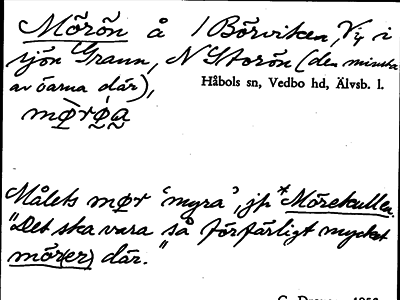 Mörön å /Börviken, V4 i
sjön Grann, N Storön (den minsta
av öarna där),
Håbols sn, Vedbo hd, Älvsb. l.
Målets mør 'myra', jfr *Mörekullen.
"Det ska vara så förfärligt mycket
mör(er) där."